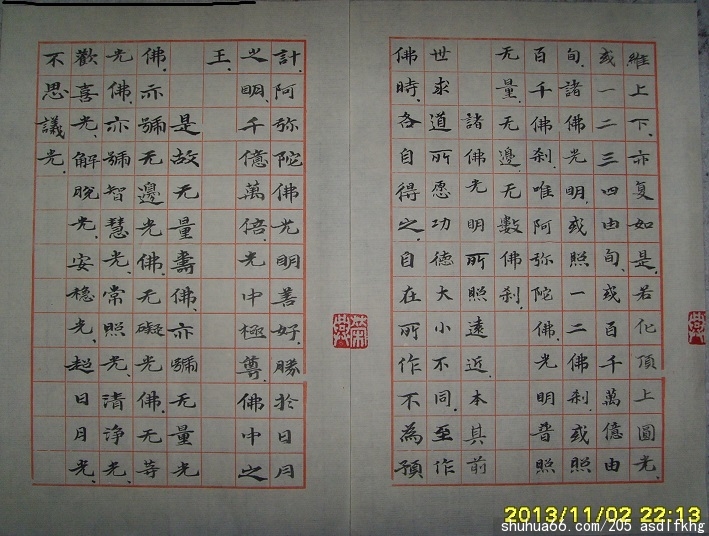 維上下.亦复如是.若化頂上圓光.
或一二三四由旬.或百千萬億由
旬.諸佛光明.或照一二佛刹.或照
百千佛刹.唯阿弥陀佛.光明普照
无量无邊无數佛刹.
諸佛光明.所照遠近.本其前
世求道.所愿功德大小不同.至作
佛時.各自得之.自在所作.不為預
計.阿弥陀佛光明善好.勝於日月
之明.千億萬倍.光中極尊.佛中之
王.
是故无量壽佛.亦號无量光
佛.亦號无邊光佛.无礙光佛.无等
光佛.亦號智慧光.常照光.清净光.
歡喜光.解脱光.安穩光.超日月光.
不思議光.
2013/11/02 22:13
shuhua66.com/205 asdffkhg